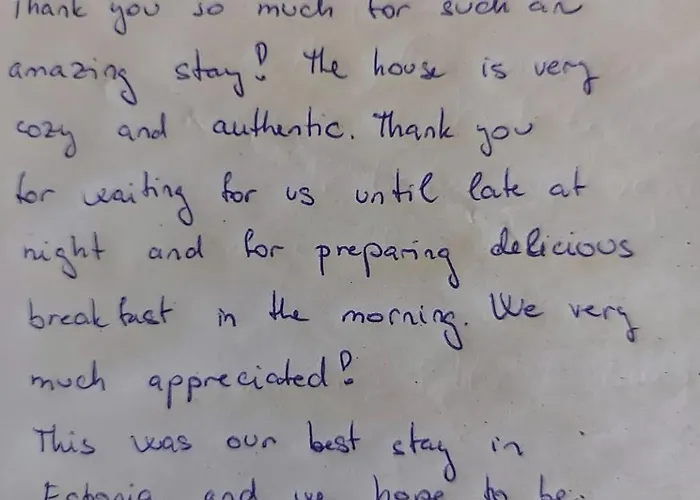 Thank you so much for such an
amazing stay! The house is very
cozy and authentic. Thank you
for waiting for us until late at
night and for preparing delicious
breakfast in the morning. We very
much appreciated!
This was our best stay in
Estonia and we hope to be